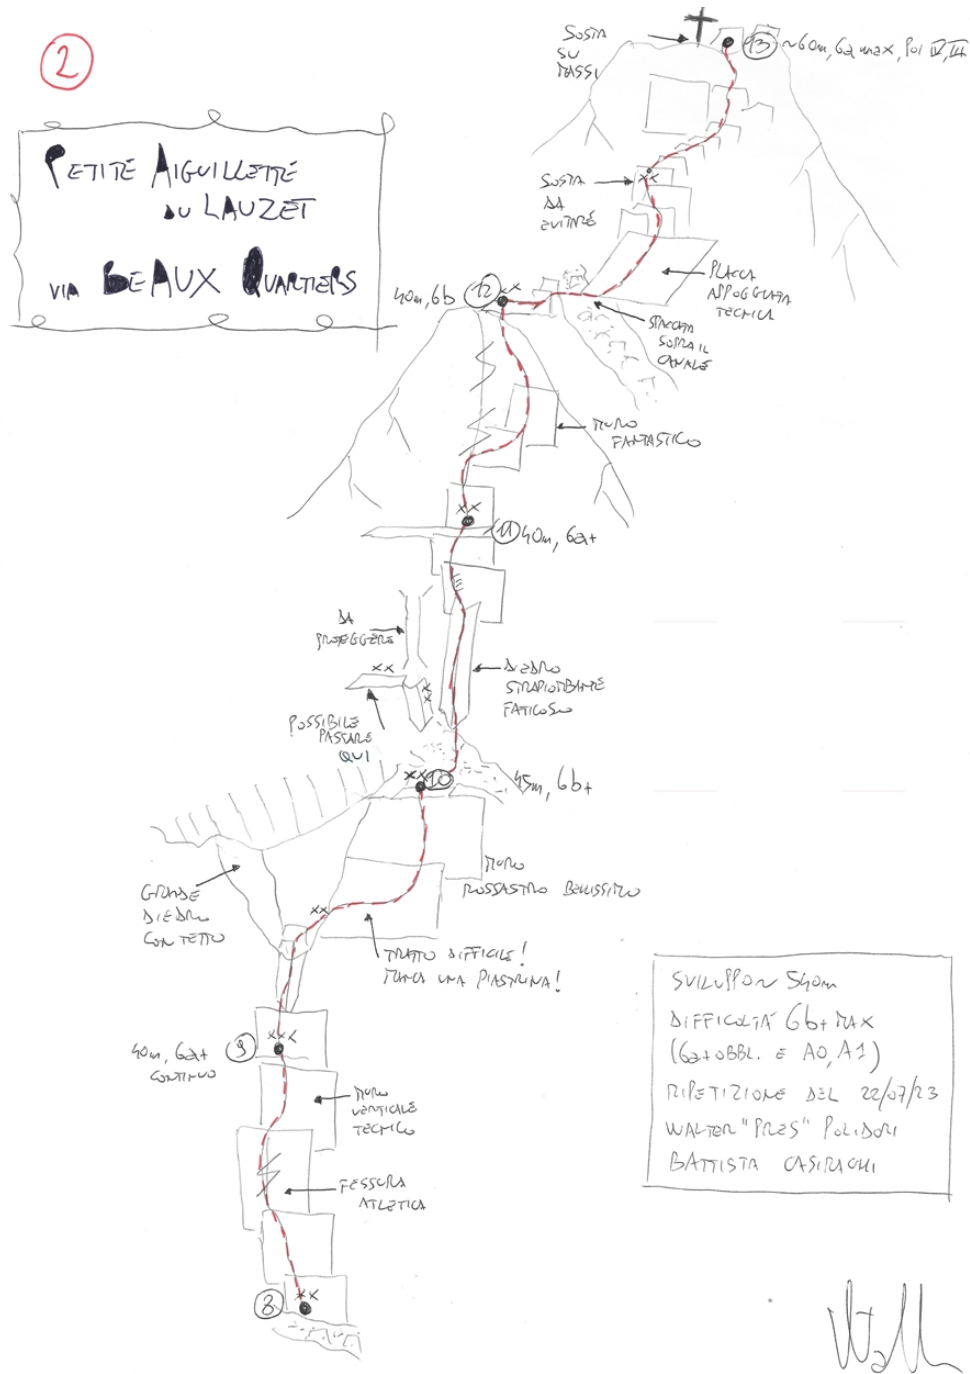 2
PETITE AIGUILLETTE
DU LAUZET
VIA BEAUX QUARTIERS
SOSTA
SU
MASSI
13
~60m, 6a max, poi IV, III
SOSTA
DA
EVITARE
xx
PLACCA
APPOGGIATA
TECNICA
SPACCATA
SOPRA IL
CANALE
40m, 6b
12
xx
MURO
FANTASTICO
xx
11
40m, 6a+
DA
PROTEGGERE
xx
xx
DIEDRO
STRAPIOMBANTE
FATICOSO
POSSIBILE
PASSARE
QUI
xx
10
45m, 6b+
MURO
ROSSASTRO BELLISSIMO
GRANDE
DIEDRO
CON TETTO
xx
TRATTO DIFFICILE!
MANCA UNA PIASTRINA!
40m, 6a+
CONTINUO
9
xxx
MURO
VERTICALE
TECNICO
FESSURA
ATLETICA
8
xx
SVILUPPO ~ 540m
DIFFICOLTÀ 6b+ MAX
(6a+ OBBL. E A0, A1)
RIPETIZIONE DEL 22/07/23
WALTER "PRES" POLIDORI
BATTISTA CASIRAGHI